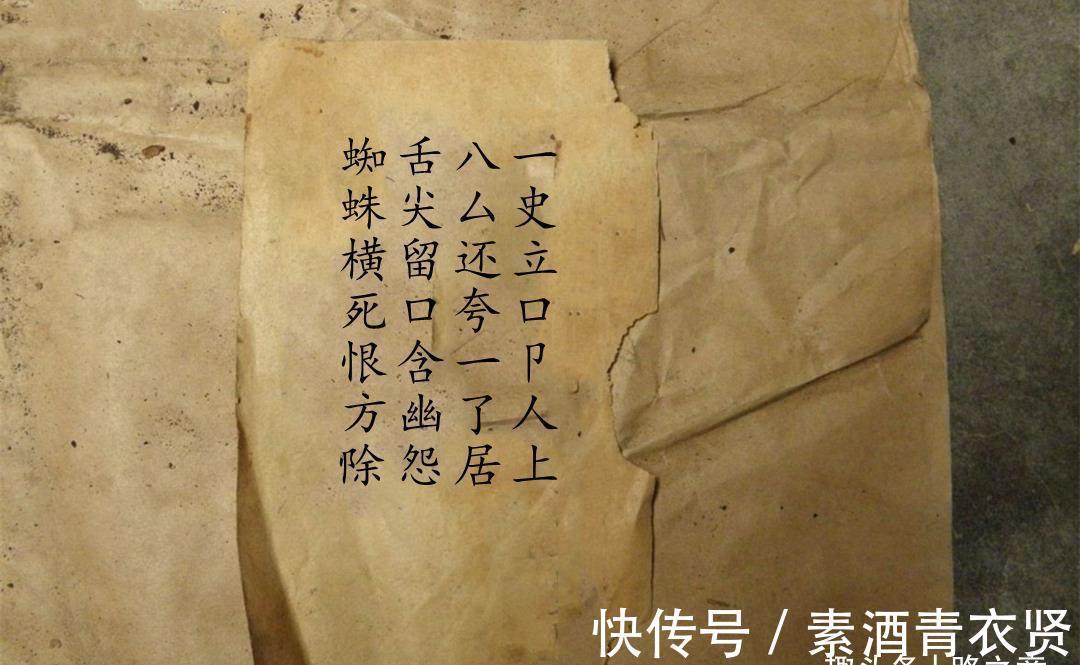 一史立口卩人上
八厶还夸一了居
舌尖留口含幽怨
蜘蛛横死恨方除
快传号 / 素酒青衣贤